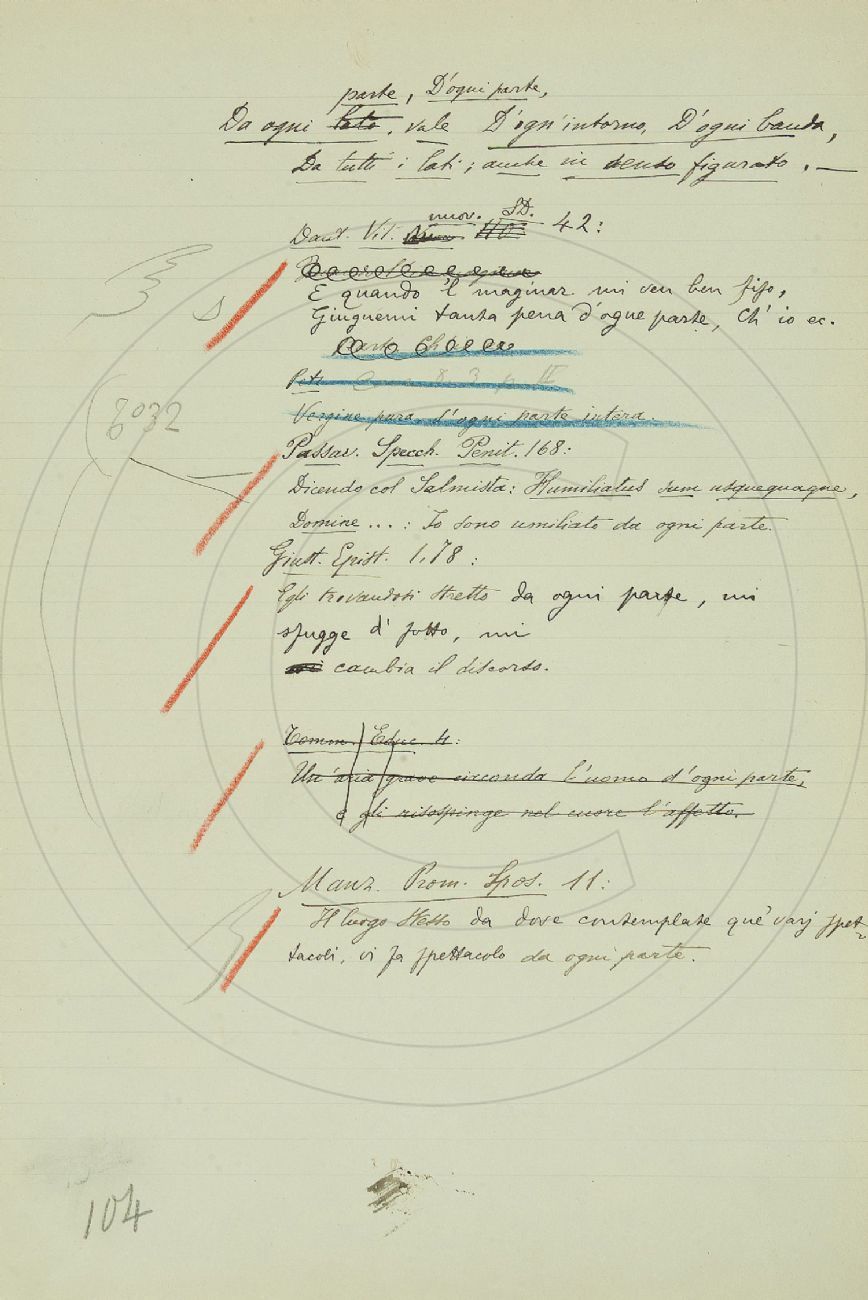 parte, D'ogni parte,
Da ogni lato, vale D'ogn'intorno, D'ogni banda,
Da tutti i lati; anche in senso figurato. —
nuov. SD.
Dant. Vit. 42:
E quando 'l maginar mi ven ben fiso,
Giugnemi tanta pena d'ogne parte, Ch' io ec.
Petr.
Vergine pura, d'ogni parte intera.
6032
Passav. Specch. Penit. 168:
Dicendo col Salmista: Humiliatus sum usquequaque,
Domine ...: Io sono umiliato da ogni parte.
Giust. Epist. 1, 78:
Egli trovandosi stretto da ogni parte, mi
sfugge di sotto, mi
cambia il discorso.
Tomm. Educ. 4:
Un'aria grave circonda l'uomo d'ogni parte,
e gli risospinge nel cuore l'affetto.
Manz. Prom. Spos. 11:
Il luogo stesso da dove contemplate que' varj spet-
tacoli, vi fa spettacolo da ogni parte.
104